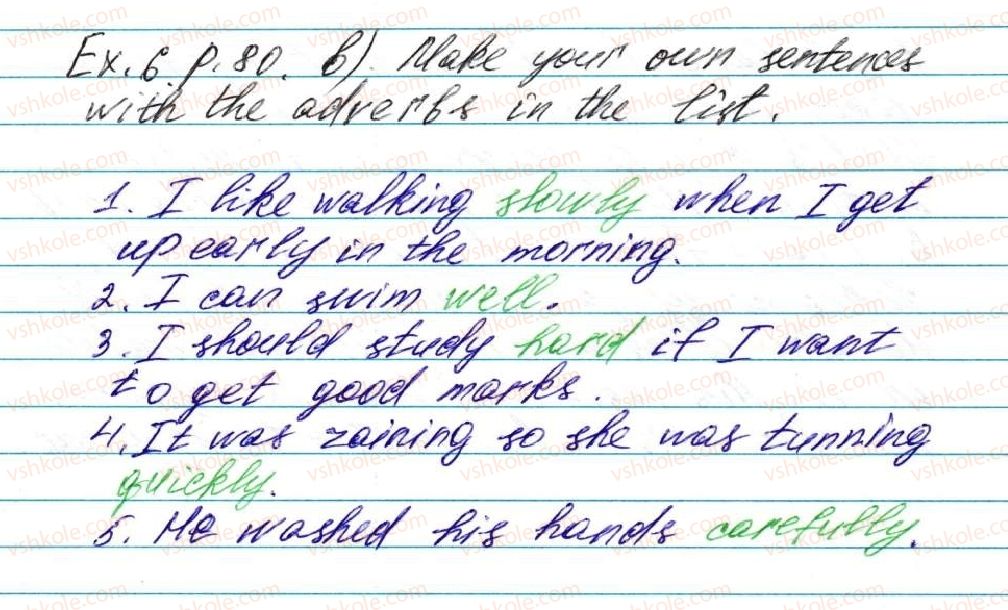 Ex. 6 p. 80. b). Make your own sentences
with the adverbs in the list.
1. I like walking slowly when I get
up early in the morning.
2. I can swim well.
3. I should study hard if I want
to get good marks.
4. It was raining so she was running
quickly.
5. He washed his hands carefully.